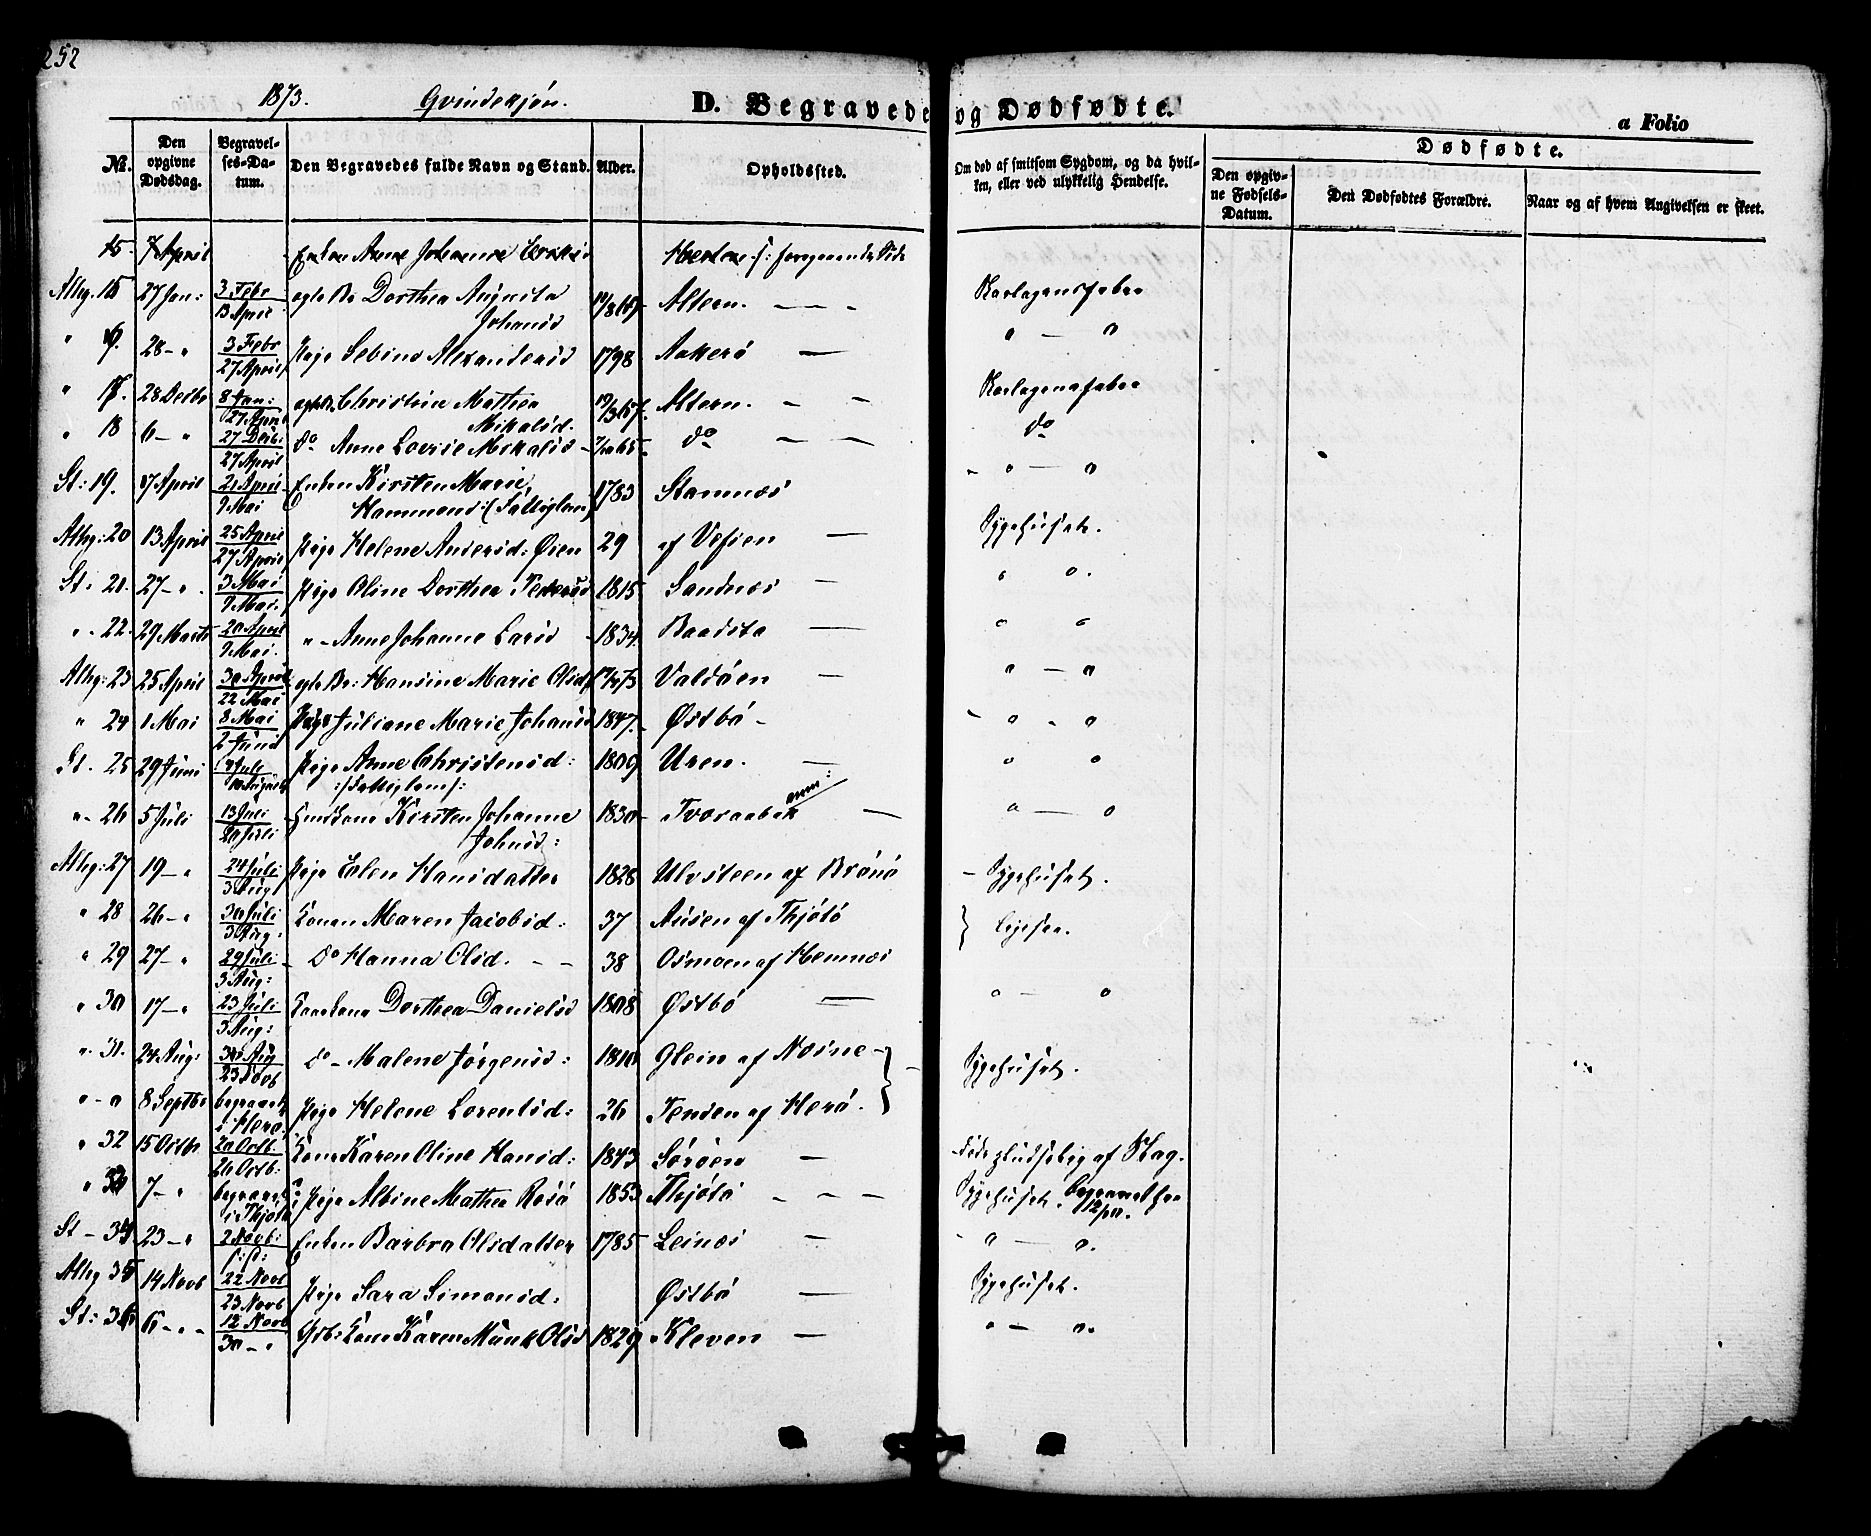 252
1873. Qvindekjön. D. Begravede og Dødfødte. a Folio
No.
Den opgivne Dødsdag.
Begravelses-Datum.
Den Begravedes fulde Navn og Stand.
Alder.
Opholdssted.
Om død af smitsom Sygdom, og da hvilken, eller ved ulykkelig Hendelse.
Dødfødte.
Den opgivne Fødsels-Datum.
Den Dødfødtes Forældre.
Naar og af hvem Angivelsen er skeet.
15. 7 April Enken Anne Johanne
Alhg. 15 27 Jan: 3 Febr 13 April ægte Br Dorthea Augusta Altern. — — -
Johansd
" 28 - " 3 Febr 27 April Pige Sebine Alexandersd 1798 Aakerö —
" 17. 28 Decbr 8 Jan: 27 April Christine Mathea Altern. - -
Mikalsd.
" 18 6 - " 27 Decb: 27 April do Anne Mikalsd - do — — do
St: 19. 17 April 21 April 9 Mai Enken Kirsten Marie 1783 Stamnæs
Hammond: (
Alhg: 20 13 April 25 April 27 April Pige Helene Andersd: Øien 29 af Vefsen — Sygehuset.
St: 21. 27 - " 3 Mai 9 Mai. Pige Oline Dorthea Pedersd 1815 Sandnæs —
" 22. 29 Marts 20 April 9 Mai. " - Anne Johanne Larsd 1834 Baadsta —
Alhg: 23 25 April 30 April 22 Mai ægte Br: Hansine Marie Olsd Valdöen —
" 24 1 Mai 8 Mai 2 Juni Pige Juliane Marie Johansd 1847. Østbö -
St. 25 29 Juni Pige Anne Christensd: 1809 Uren. —
" - 26 5 Juli 13 Juli 20 Juli Kirsten Johanne 1830 Tværaabæk —
Johnsd:
Alhg: 27 19 - " 24 Juli 3 Aug Pige Elen Hansdatter 1828 Ulvsteen af Brönö - Sygehuset.
" 28 26 - " 30 Juli 3 Aug. Konen Maren Jacobsd: 37 Ausen af Thjötö
" 29 27 - " 29 Juli 3 Aug: do Hanna Olsd. - - 38 Osmoen af Hemnæs
" 30 17 - " 23 Juli 3 Aug: Dorthea Danielsd 1808 Østbö —
" 31. 24 Aug: 30 Aug 23 Novb do - Malene Jörgensd: 1810 Glein af Næsne - Sygehuset.
" - " 8 Septbr begravet i Herö. Pige Helene Lorentsd: 26 Tenden af Herö.
" 32 15 Octbr 20 Octb: 26 Octb: Kone Karen Oline Hansd: 1843 Söröen —
" 33 7 - " begravet i Thjötö Pige Albine Mathea Rosö 1853 Thjötö - - - Sygehuset.
St - 34 23 - " 2 Novb: Enken Barbra Olsdatter 1785 Leinæs —
Alhg 35 14 Novb 22 Novb 23 Novb Pige Sara Simonsd: Østbö — Sygehuset.
St: 36 6 - " - 12 Novb 30 - " Kone Karen Munk Olsd 1829 Kleven —